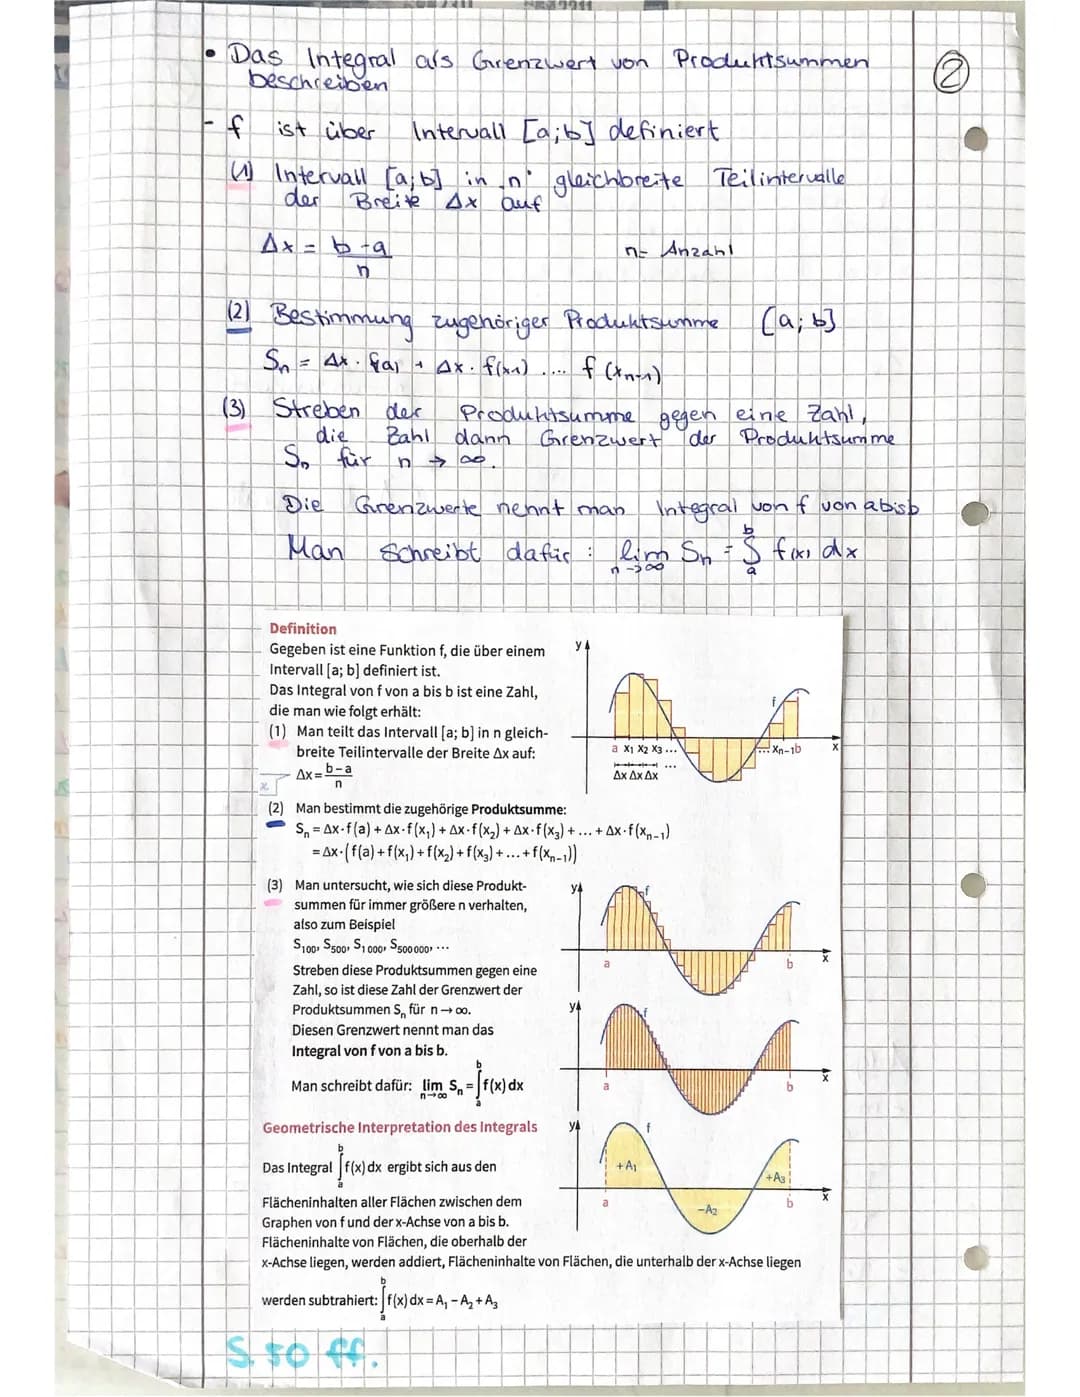 • Das Integral als Grenzwert von Produktsummen
beschreiben
②
- f ist über Intervall [a;b] definiert
(1) Intervall [a;b] in „n“ gleichbreite Teilintervalle
der Breite Δx auf
Δx = b-a
n
n= Anzahl
(2) Bestimmung zugehöriger Produktsumme [a;b]
Sₙ = Δx · f(a) + Δx · f(x₁) .... f(xₙ₋₁)
(3) Streben der Produktsumme gegen eine Zahl,
die Zahl dann Grenzwert der Produktsumme
Sₙ für n → ∞.
Die Grenzwerte nennt man Integral von f von a bis b
Man schreibt dafür : lim Sₙ = ∫ f(x) dx
n→∞ a b
Definition
Gegeben ist eine Funktion f, die über einem
Intervall [a; b] definiert ist.
Das Integral von f von a bis b ist eine Zahl,
die man wie folgt erhält:
(1) Man teilt das Intervall [a; b] in n gleich-
breite Teilintervalle der Breite Δx auf:
Δx = b-a
n
y
f
a x₁ x₂ x₃ ... ... xₙ₋₁ b x
Δx Δx Δx ...
(2) Man bestimmt die zugehörige Produktsumme:
Sₙ = Δx·f(a) + Δx·f(x₁) + Δx·f(x₂) + Δx·f(x₃) + ... + Δx·f(xₙ₋₁)
= Δx·(f(a) + f(x₁) + f(x₂) + f(x₃) + ... + f(xₙ₋₁))
(3) Man untersucht, wie sich diese Produkt-
summen für immer größere n verhalten,
also zum Beispiel
S₁₀₀, S₅₀₀, S₁ ₀₀₀, S₅₀₀ ₀₀₀, ...
Streben diese Produktsummen gegen eine
Zahl, so ist diese Zahl der Grenzwert der
Produktsummen Sₙ für n→∞.
Diesen Grenzwert nennt man das
Integral von f von a bis b.
Man schreibt dafür: lim Sₙ = ∫ f(x) dx
n→∞ a b
y f
a b x
y f
a b x
Geometrische Interpretation des Integrals
Das Integral ∫ f(x) dx ergibt sich aus den
a b
Flächeninhalten aller Flächen zwischen dem
Graphen von f und der x-Achse von a bis b.
Flächeninhalte von Flächen, die oberhalb der
x-Achse liegen, werden addiert, Flächeninhalte von Flächen, die unterhalb der x-Achse liegen
werden subtrahiert: ∫ f(x) dx = A₁ − A₂ + A₃
a b
y f
+A₁
+A₃
a b x
−A₂
S. 50 ff.